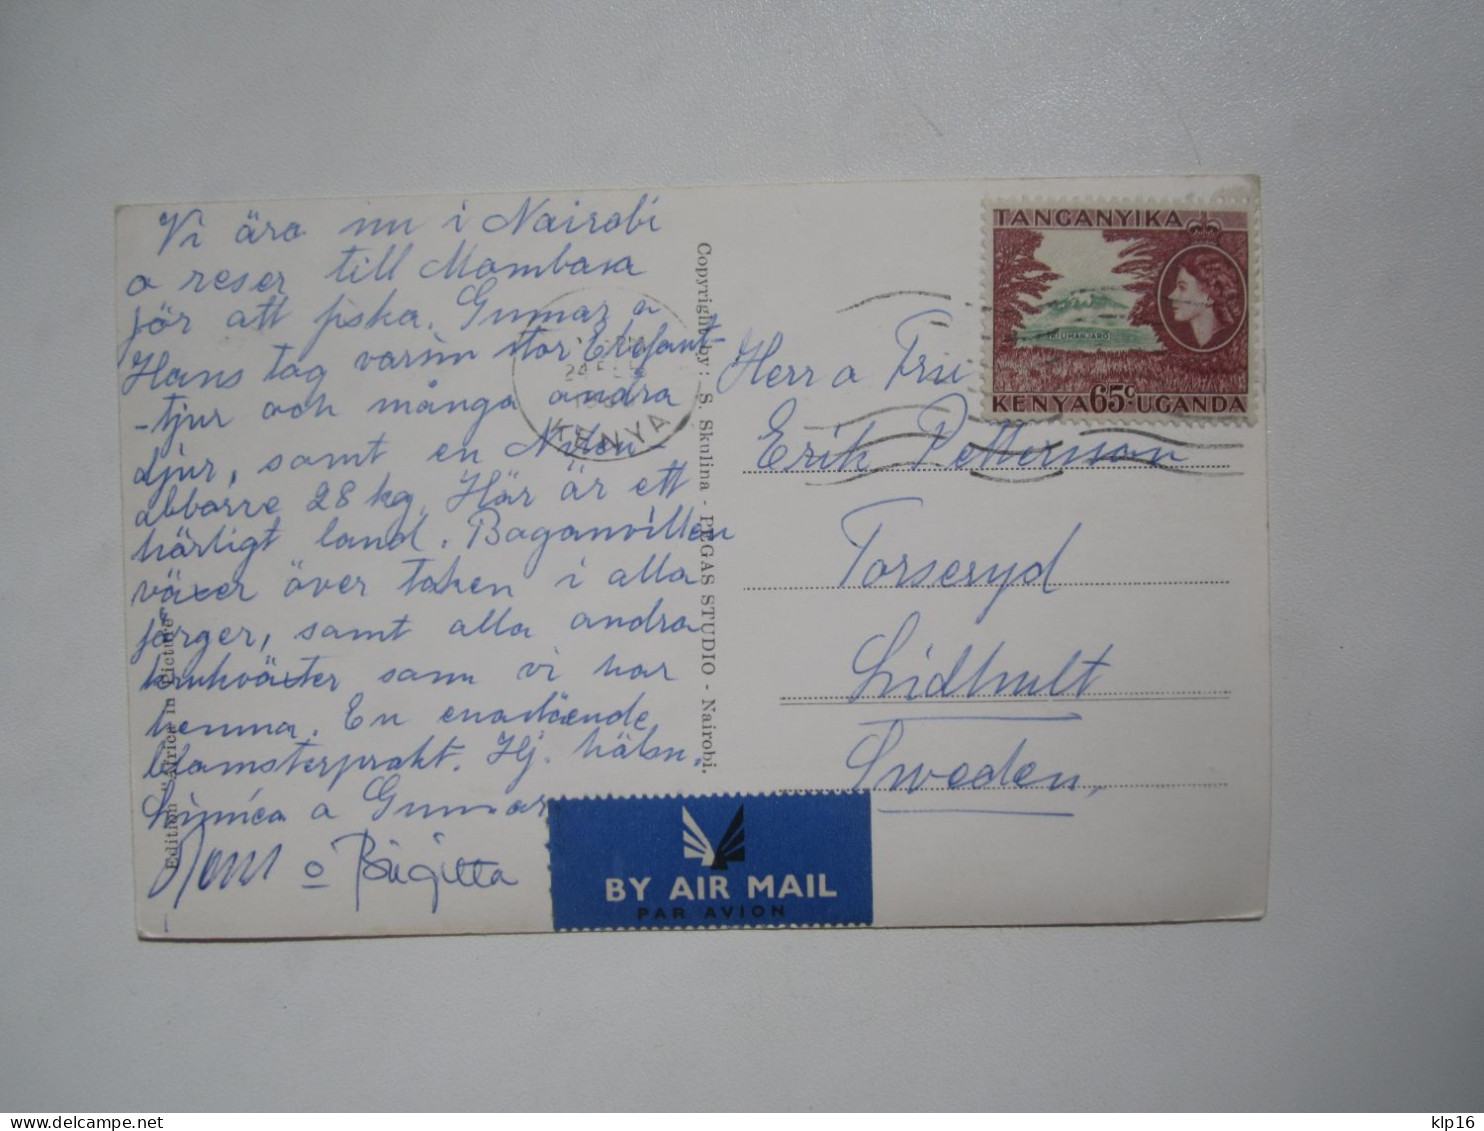 Vi äro nu i Nairobi
o reser till Mombasa
för att fiska. Gunnar o
Hans tog varsin stor Elefant-
-tjur och många andra
djur, samt en Nilen-
abborre 28 kg. Här är ett
härligt land. Baganvillan
växer över taken i alla
färger, samt alla andra
krukväxter som vi har
hemma. En enastående
blomsterprakt. Hj. hälsn.
Linnéa o Gunnar
o Birgitta
Edition "Africa in Picture"
Copyright by: S. Skulina - PEGAS STUDIO - Nairobi.
24
KENYA
TANGANYIKA
KILIMANJARO
KENYA 65c UGANDA
Herr o Fru
Erik Pettersson
Torseryd
Lidhult
Sweden.
BY AIR MAIL
PAR AVION
klp16